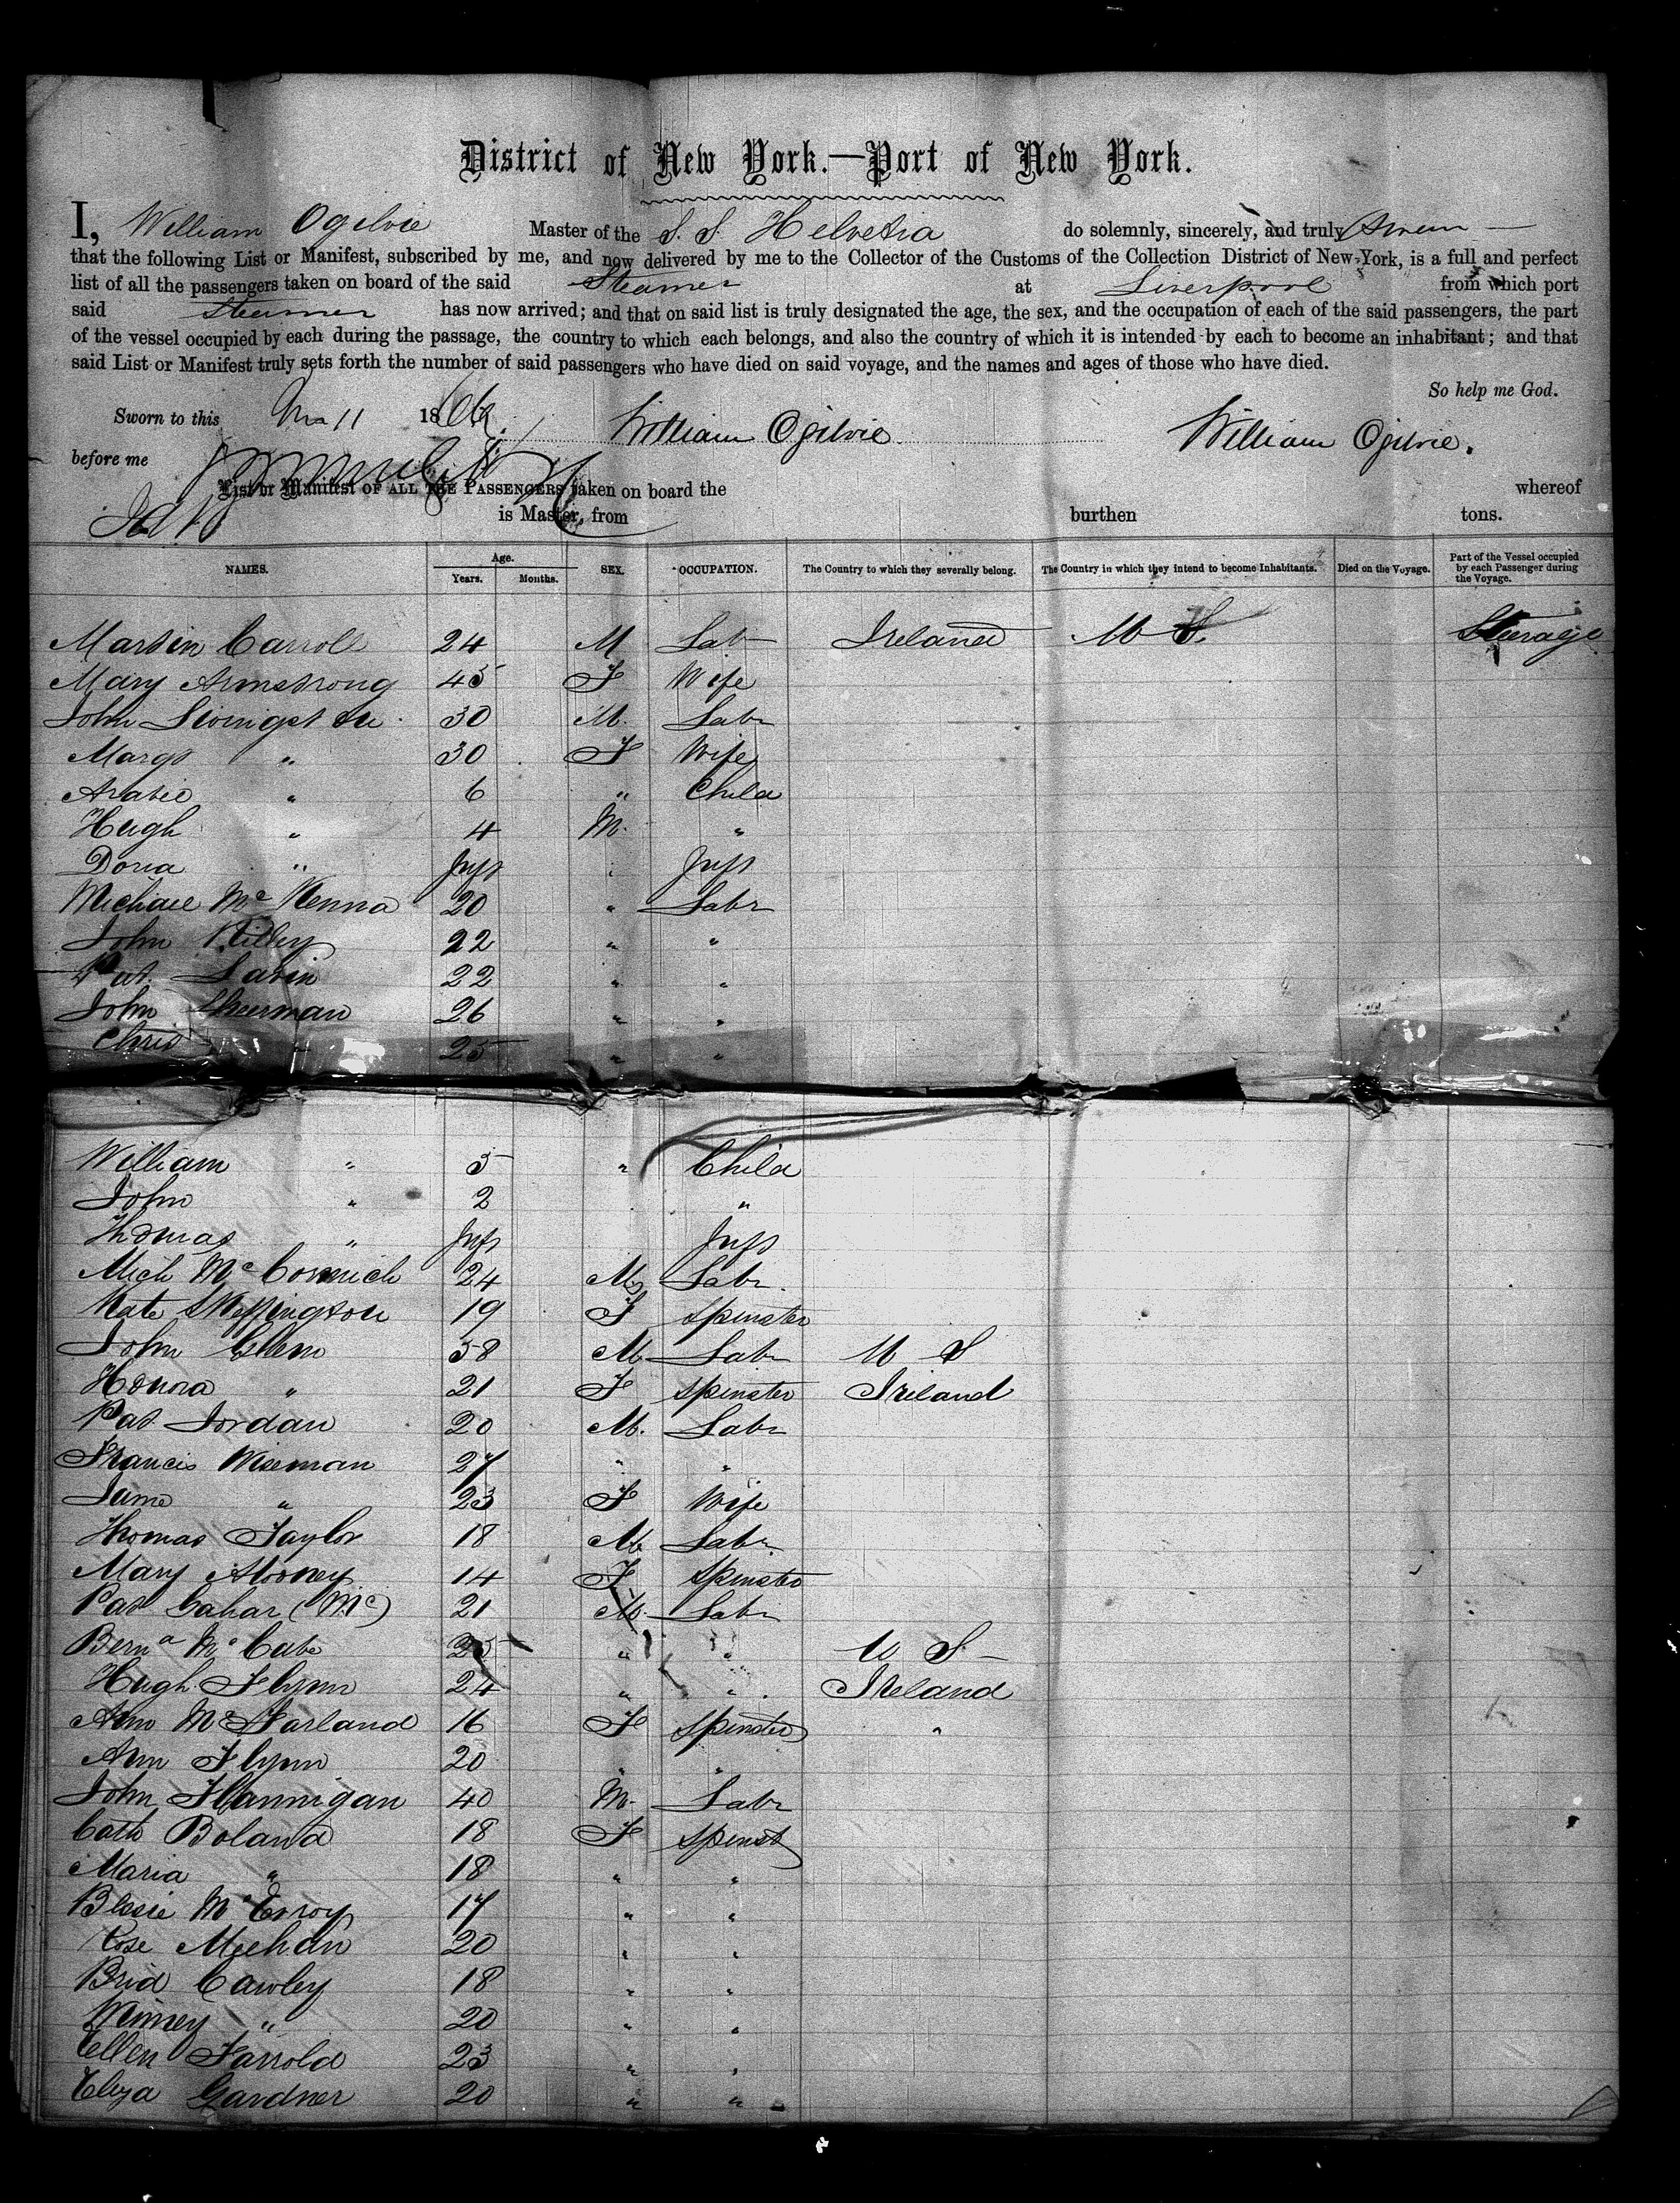 District of New York.—Port of New York.
I, William Ogilvie Master of the S. S. Helvetia do solemnly, sincerely, and truly Swear
that the following List or Manifest, subscribed by me, and now delivered by me to the Collector of the Customs of the Collection District of New-York, is a full and perfect
list of all the passengers taken on board of the said Steamer at Liverpool from which port
said Steamer has now arrived; and that on said list is truly designated the age, the sex, and the occupation of each of the said passengers, the part
of the vessel occupied by each during the passage, the country to which each belongs, and also the country of which it is intended by each to become an inhabitant; and that
said List or Manifest truly sets forth the number of said passengers who have died on said voyage, and the names and ages of those who have died.
So help me God.
Sworn to this 11 18 William Ogilvie. William Ogilvie.
before me
List or Manifest OF ALL THE PASSENGERS taken on board the whereof
is Master, from burthen tons.
NAMES. Age. Years. Months. SEX. OCCUPATION. The Country to which they severally belong. The Country in which they intend to become Inhabitants. Died on the Voyage. Part of the Vessel occupied by each Passenger during the Voyage.
Martin Carroll 24 M Lab Ireland U S. Steerage
Mary Armstrong 45 F Wife
John 30 M. Labr
Margt " 30 F Wife
" 6 " Child
Hugh " 4 M. "
" Inft Inft
Michael Mc Kenna 20 " Labr
John 22 " "
Pat Lavin 22 " "
John Sheerman 26 " "
Chris " 25 " "
William " 5 " Child
John " 2 "
Thomas " Inft Inft
Mich McCormick 24 M Labr
Kate Skeffington 19 F Spinster
John 58 M Labr U S
Honora " 21 F Spinster Ireland
Pat Jordan 20 M. Labr
Francis Wiseman 27 " "
Jane " 23 F Wife
Thomas Taylor 18 M Labr
Mary Mooney 14 F Spinster
Pat Gahar (Mc) 21 M Labr
Bernd McCabe 25 " " U S
Hugh Flynn 24 " " Ireland
Ann McFarland 16 F Spinster "
Ann Flynn 20 " "
John Flannigan 40 M. Labr
Cath Boland 18 F Spinst
Maria " 18 " "
Bessie McEvroy 17 " "
Rose Meehan 20 " "
Brid Cawley 18 " "
Winney " 20 " "
Ellen Farrold 23 " "
Eliza Gardner 20 " "